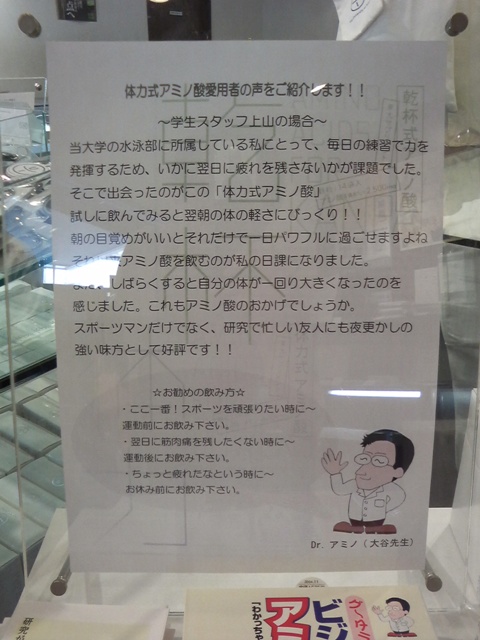 体力式アミノ酸愛用者の声をご紹介します！！
～学生スタッフ上山の場合～
当大学の水泳部に所属している私にとって、毎日の練習で力を
発揮するため、いかに翌日に疲れを残さないかが課題でした。
そこで出会ったのがこの「体力式アミノ酸」
試しに飲んでみると翌朝の体の軽さにびっくり！！
朝の目覚めがいいとそれだけで一日パワフルに過ごせますよね
アミノ酸を飲むのが私の日課になりました。
しばらくすると自分の体が一回り大きくなったのを
感じました。これもアミノ酸のおかげでしょうか。
スポーツマンだけでなく、研究で忙しい友人にも夜更かしの
強い味方として好評です！！
☆お勧めの飲み方☆
・ここ一番！スポーツを頑張りたい時に～
運動前にお飲み下さい。
・翌日に筋肉痛を残したくない時に～
運動後にお飲み下さい。
・ちょっと疲れたなという時に～
お休み前にお飲み下さい。
Dr. アミノ（大谷先生）
乾杯式アミノ酸
体力式ア
研究が
ビジ
ア
「わかっちゃ